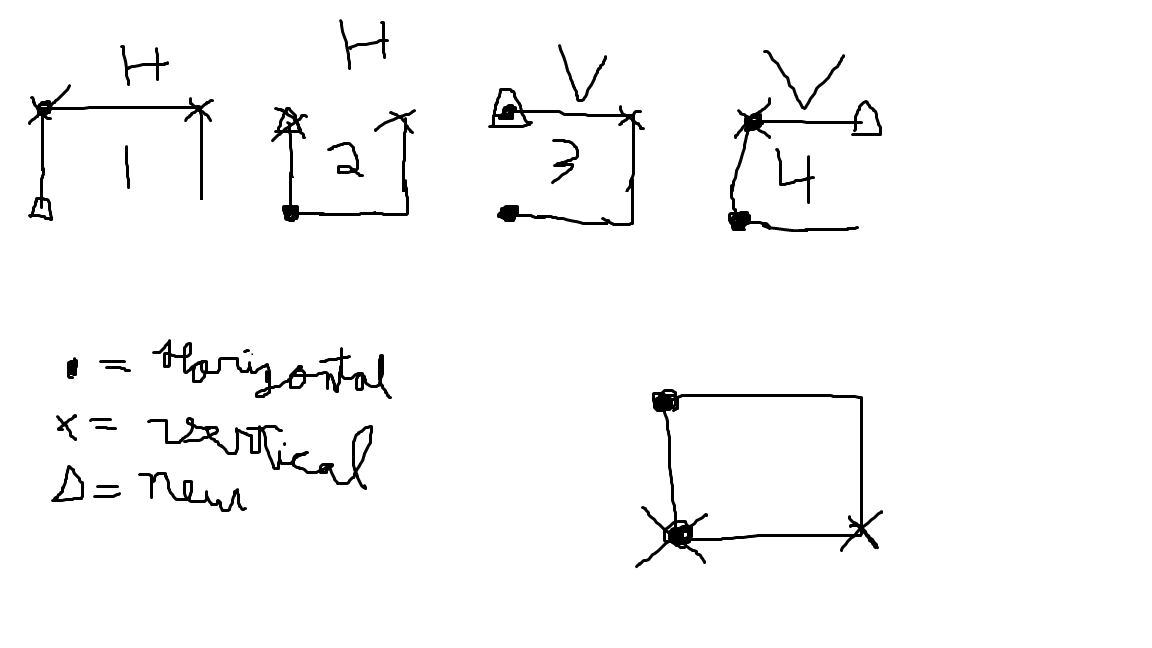 H H V V
1 2 3 4
▮ = Horizontal
x = vertical
Δ = new